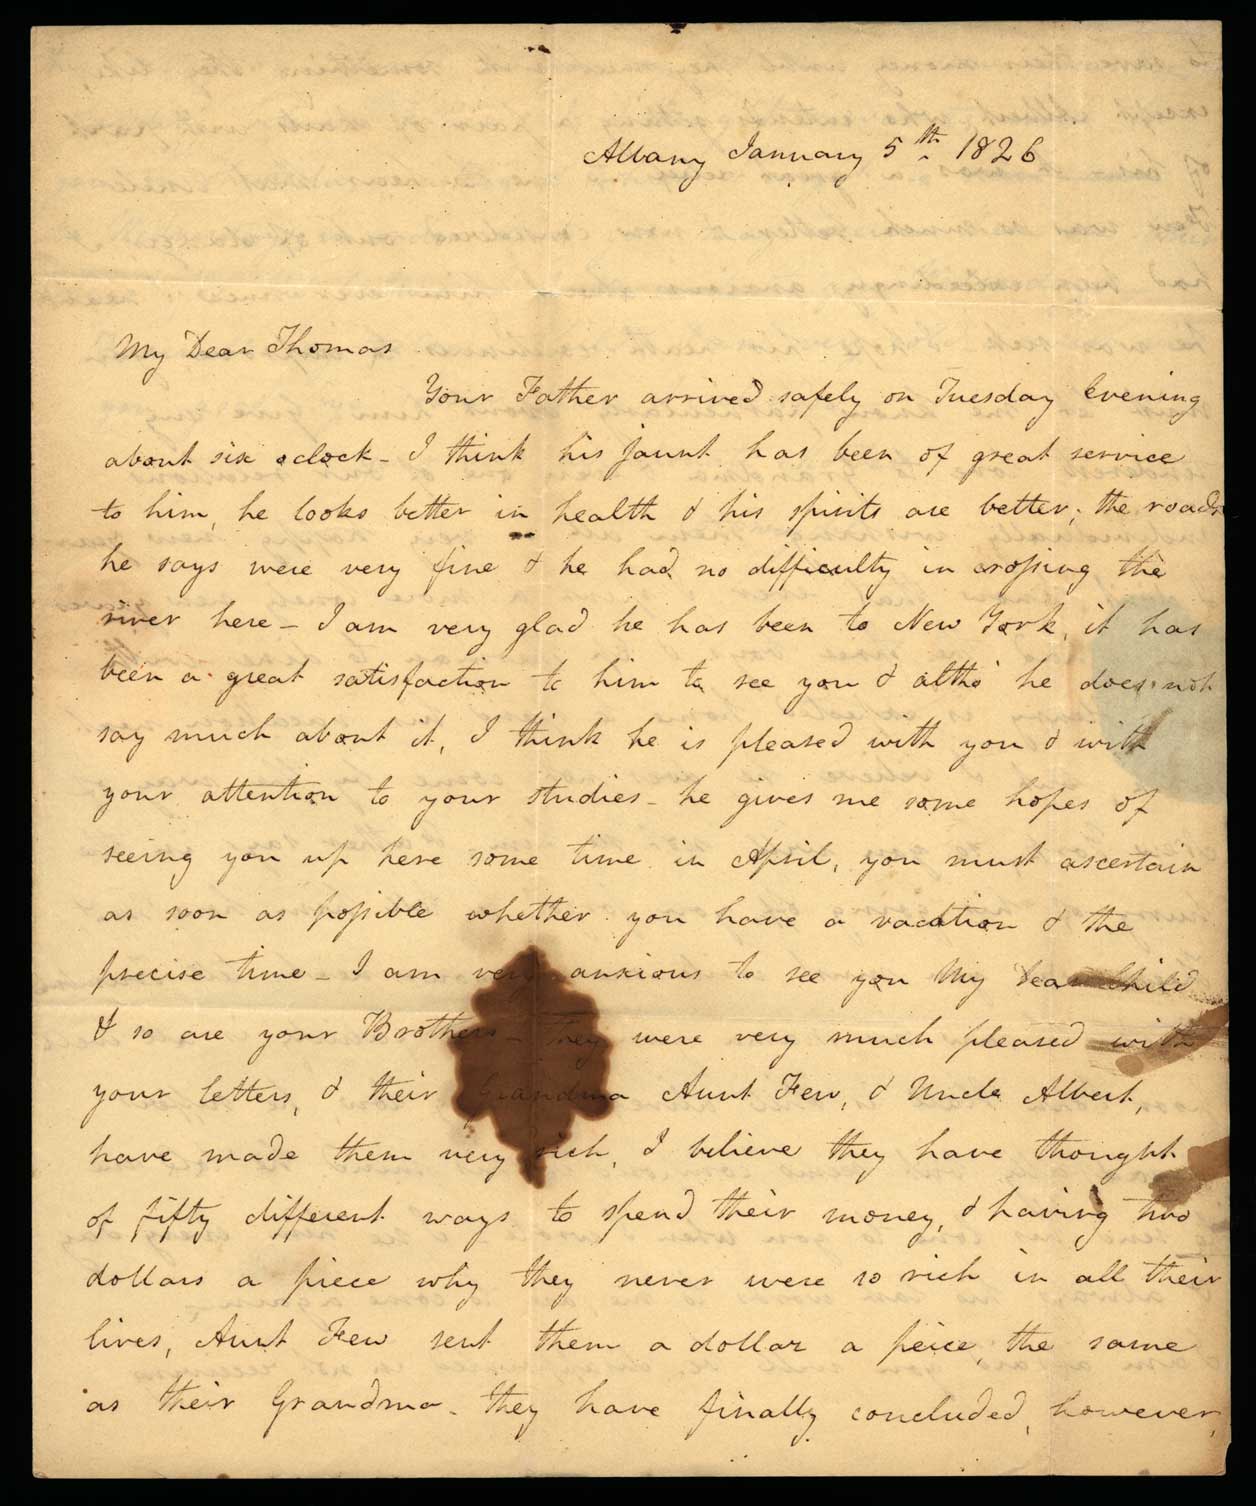 Albany January 5th 1826
My Dear Thomas
Your Father arrived safely on Tuesday Evening
about six oclock - I think his jaunt has been of great service
to him, he looks better in health & his spirits are better; the roads
he says were very fine & he had no difficulty in crossing the
river here - I am very glad he has been to New York, it has
been a great satisfaction to him to see you & altho' he does not
say much about it, I think he is pleased with you & with
your attention to your studies - he gives me some hopes of
seeing you up here some time in April, you must ascertain
as soon as possible whether you have a vacation & the
precise time - I am very anxious to see you My Dear Child
& so are your Brothers - They were very much pleased with
your letters, & their Grandma Aunt Few, & Uncle Albert,
have made them very rich, I believe they have thought
of fifty different ways to spend their money, & having two
dollars a piece why they never were so rich in all their
lives, Aunt Few sent them a dollar a peice, the same
as their Grandma - they have finally concluded, however,